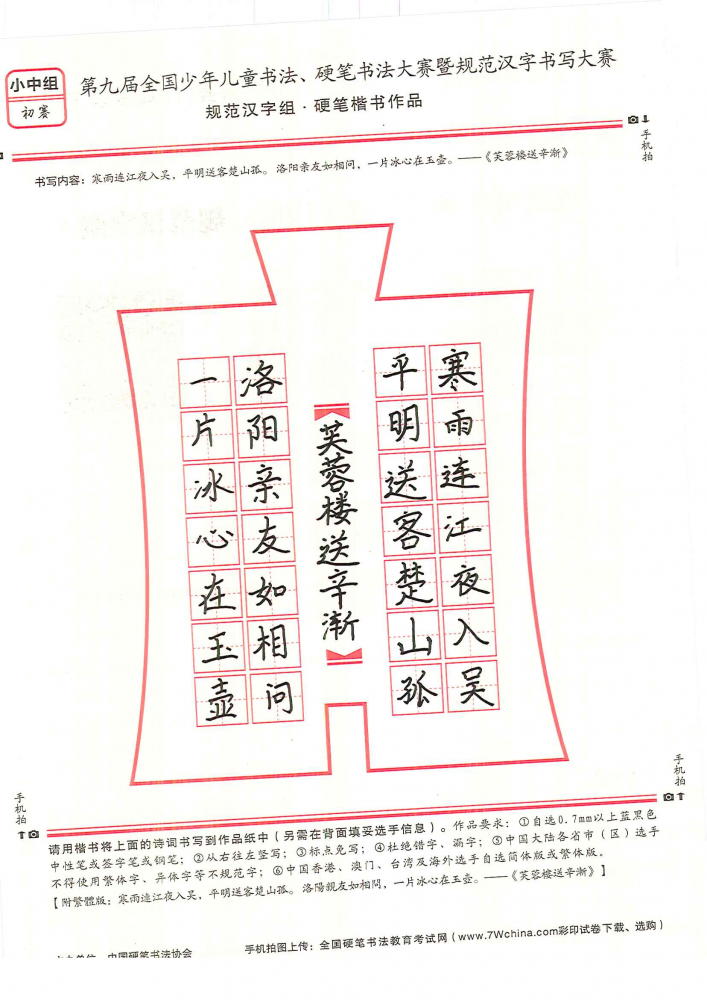 小中组
初赛
第九届全国少年儿童书法、硬笔书法大赛暨规范汉字书写大赛
规范汉字组·硬笔楷书作品
手机拍
书写内容：寒雨连江夜入吴，平明送客楚山孤。洛阳亲友如相问，一片冰心在玉壶。——《芙蓉楼送辛渐》
寒雨连江夜入吴
平明送客楚山孤
芙蓉楼送辛渐
洛阳亲友如相问
一片冰心在玉壶
手机拍
手机拍
请用楷书将上面的诗词书写到作品纸中（另需在背面填妥选手信息）。作品要求：①自选0.7mm以上蓝黑色
中性笔或签字笔或钢笔；②从右往左竖写；③标点免写；④杜绝错字、漏字；⑤中国大陆各省市（区）选手
不得使用繁体字、异体字等不规范字；⑥中国香港、澳门、台湾及海外选手自选简体版或繁体版。
【附繁體版：寒雨连江夜入吴，平明送客楚山孤。洛陽親友如相問，一片冰心在玉壶。——《芙蓉楼送辛渐》】
中国硬笔书法协会
手机拍图上传：全国硬笔书法教育考试网（www.7Wchina.com彩印试卷下载、选购）